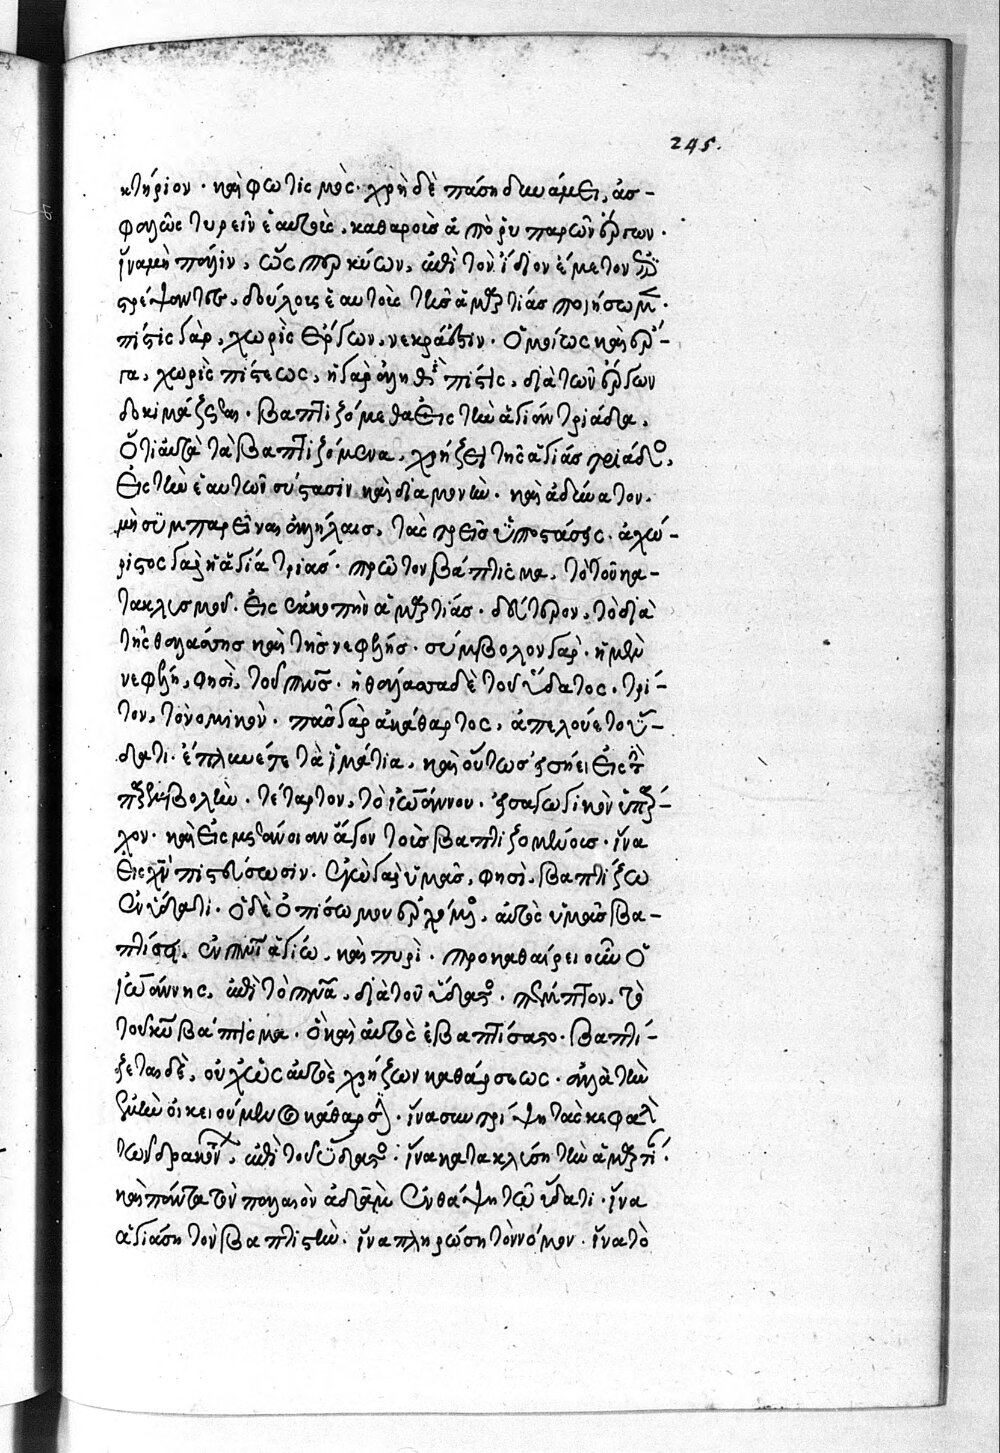 245.
κτήριον · καὶ φωτισμός · χρὴ δὲ πάσῃ δυνάμει, ἀσ-
φαλῶς τηρεῖν ἑαυτοὺς, καθαροὺς ἀπὸ ῥυπαρῶν ἔργων ·
ἵνα μὴ πάλιν, ὡς περ κύων, ἐπὶ τὸν ἴδιον ἔμετον ἐπι
στρέψαντες, δούλους ἑαυτοὺς τῆς ἁμαρτίας ποιήσωμεν ·
πίστις γὰρ, χωρὶς ἔργων, νεκρά ἐστιν · ὁμοίως καὶ ἔρ-
γα, χωρὶς πίστεως, ἡ γὰρ ἀληθὴς πίστις, διὰ τῶν ἔργων
δοκιμάζεται · βαπτιζόμεθα εἰς τὴν ἁγίαν τριάδα,
ὅτι αὐτὰ τὰ βαπτιζόμενα, χρήζει τῆς ἁγίας τριάδος,
εἰς τὴν ἑαυτῶν σύστασιν καὶ διαμονὴν · καὶ ἀδύνατον,
μὴ συμπαρεῖναι ἀλλήλαις, τὰς τρεῖς ὑποστάσεις · ἀχώ-
ριστος γὰρ ἡ ἁγία τριάς · πρῶτον βάπτισμα, τὸ τοῦ κα-
τακλυσμοῦ · εἰς ἐκκοπὴν ἁμαρτίας · δεύτερον, τὸ διὰ
τῆς θαλάσσης καὶ τῆς νεφέλης · σύμβολον γὰρ · ἡ μὲν
νεφέλη, φησὶ, τοῦ πνς · ἡ θάλασσα δὲ τοῦ ὕδατος · τρί-
τον, τὸ νομικὸν · πᾶς γὰρ ἀκάθαρτος, ἀπελούετο ὕ-
δατι · ἔπλυνέ τε τὰ ἱμάτια, καὶ οὕτως εἰσῄει εἰς τὴν
παρεμβολὴν · τέταρτον, τὸ ἰωάννου · εἰσαγωγικὸν ὑπάρ-
χον · καὶ εἰς μετάνοιαν ἄγον τοὺς βαπτιζομένους · ἵνα
εἰς χν πιστεύσωσιν · ἐγὼ γὰρ ὑμᾶς, φησὶ, βαπτίζω
ἐν ὕδατι · ὁ δὲ ὀπίσω μου ἐρχόμενος, αὐτὸς ὑμᾶς βα-
πτίσει, ἐν πνι ἁγίῳ, καὶ πυρὶ · προκαθαίρει οὖν ὁ
ἰωάννης, ἐπὶ τὸ πνα, διὰ τοῦ ὕδατος · πέμπτον, τὸ
τοῦ κυ βάπτισμα · ὃ καὶ αὐτὸς ἐβαπτίσατο · βαπτί-
ζεται δὲ, οὐχ ὡς αὐτὸς χρῄζων καθάρσεως · ἀλλὰ τὴν
ἐμὴν οἰκειούμενος κάθαρσιν · ἵνα συντρίψῃ τὰς κεφαλὰς
τῶν δρακόντων, ἐπὶ τοῦ ὕδατος · ἵνα κατακλύσῃ τὴν ἁμαρτίαν ·
καὶ πάντα τὸν παλαιὸν ἀδὰμ ἐνθάψῃ τῷ ὕδατι · ἵνα
ἁγιάσῃ τὸν βαπτιστὴν · ἵνα πληρώσῃ τὸν νόμον · ἵνα τὸ